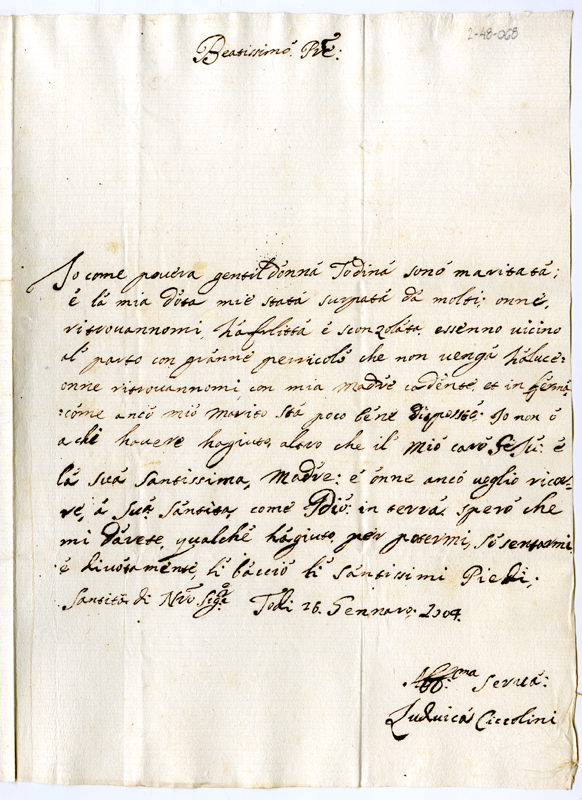 2-48-068
Beatissimo. Pre:
Io come povera gentildonna Todina sono maritata;
è la mia dota mie stata surpata da molti; onne,
ritrovannomi, hafulitta è sconzolata, essenno vicino
al parto con granne perricolo che non venga haluce:
onne ritrovannomi, con mia madre cadente, et in ferma,
:come anco mio marito sta poco bene disposte: Io non ò
a chi havere hagiuto, altro che il mio caro Gesù: è
la sua santissima, Madre: è onne anco voglio ricor=
re, à sua santita, come Pdio: in terra, spero che
mi darete, qualche hagiuto, per potermi, sosentarmi
è divotamente, li baccio li santissimi Piedi,
santità di Nro Sigre Todi 26. Gennaro, 1704.
serva:
Luduica Ciccolini